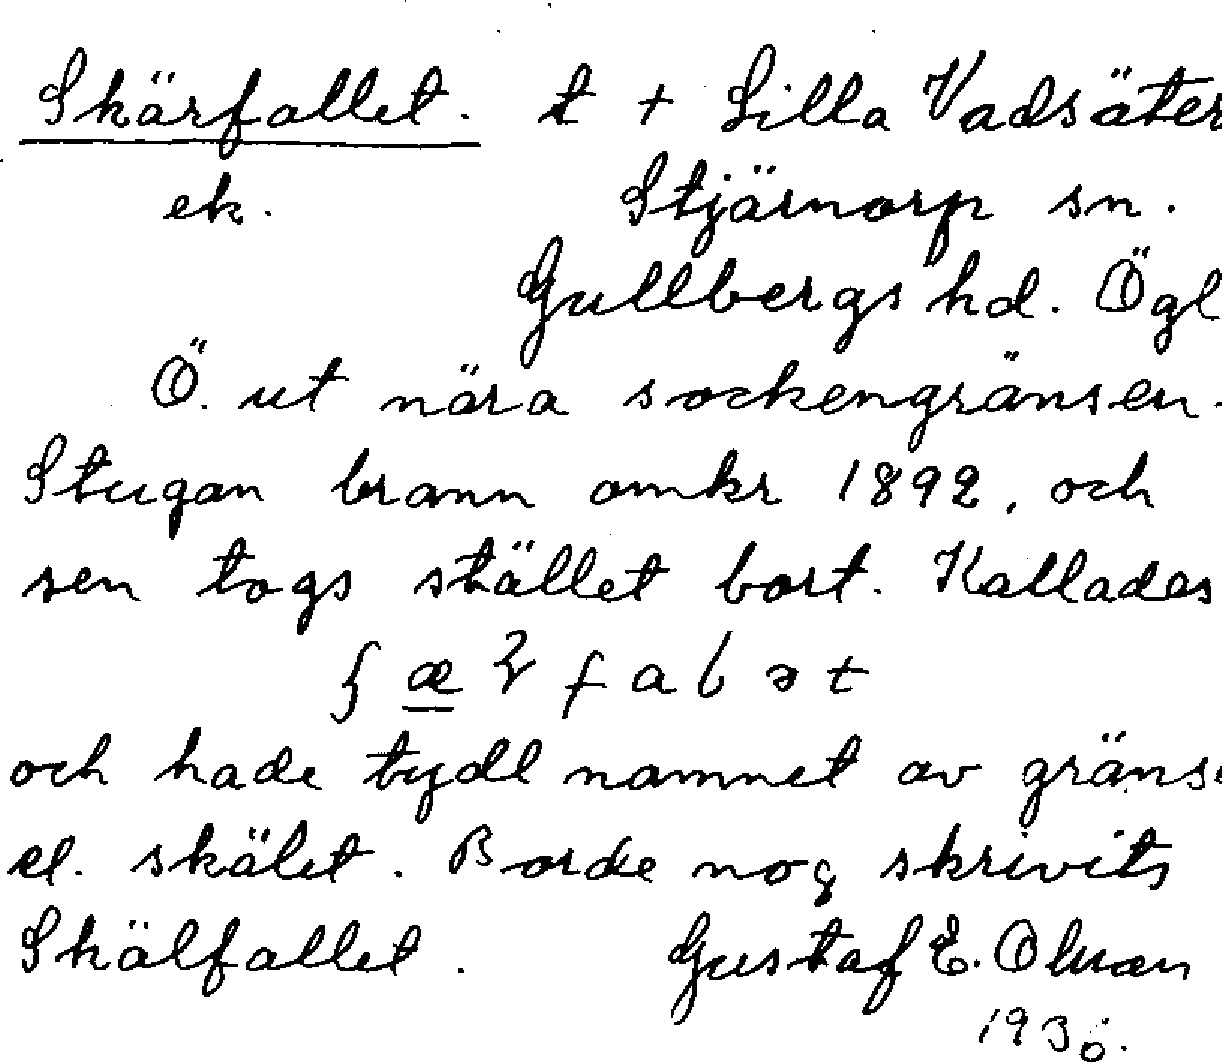 Skärfallet. t + Lilla Vadsäter
ek. Stjärnorp sn.
Gullbergs hd. Ögl
Ö. ut nära sockengränsen.
Stugan brann omkr 1892, och
sen togs stället bort. Kallades
och hade tydl namnet av gräns
el. skälet. Borde nog skrivits
Skälfallet. Gustaf E.